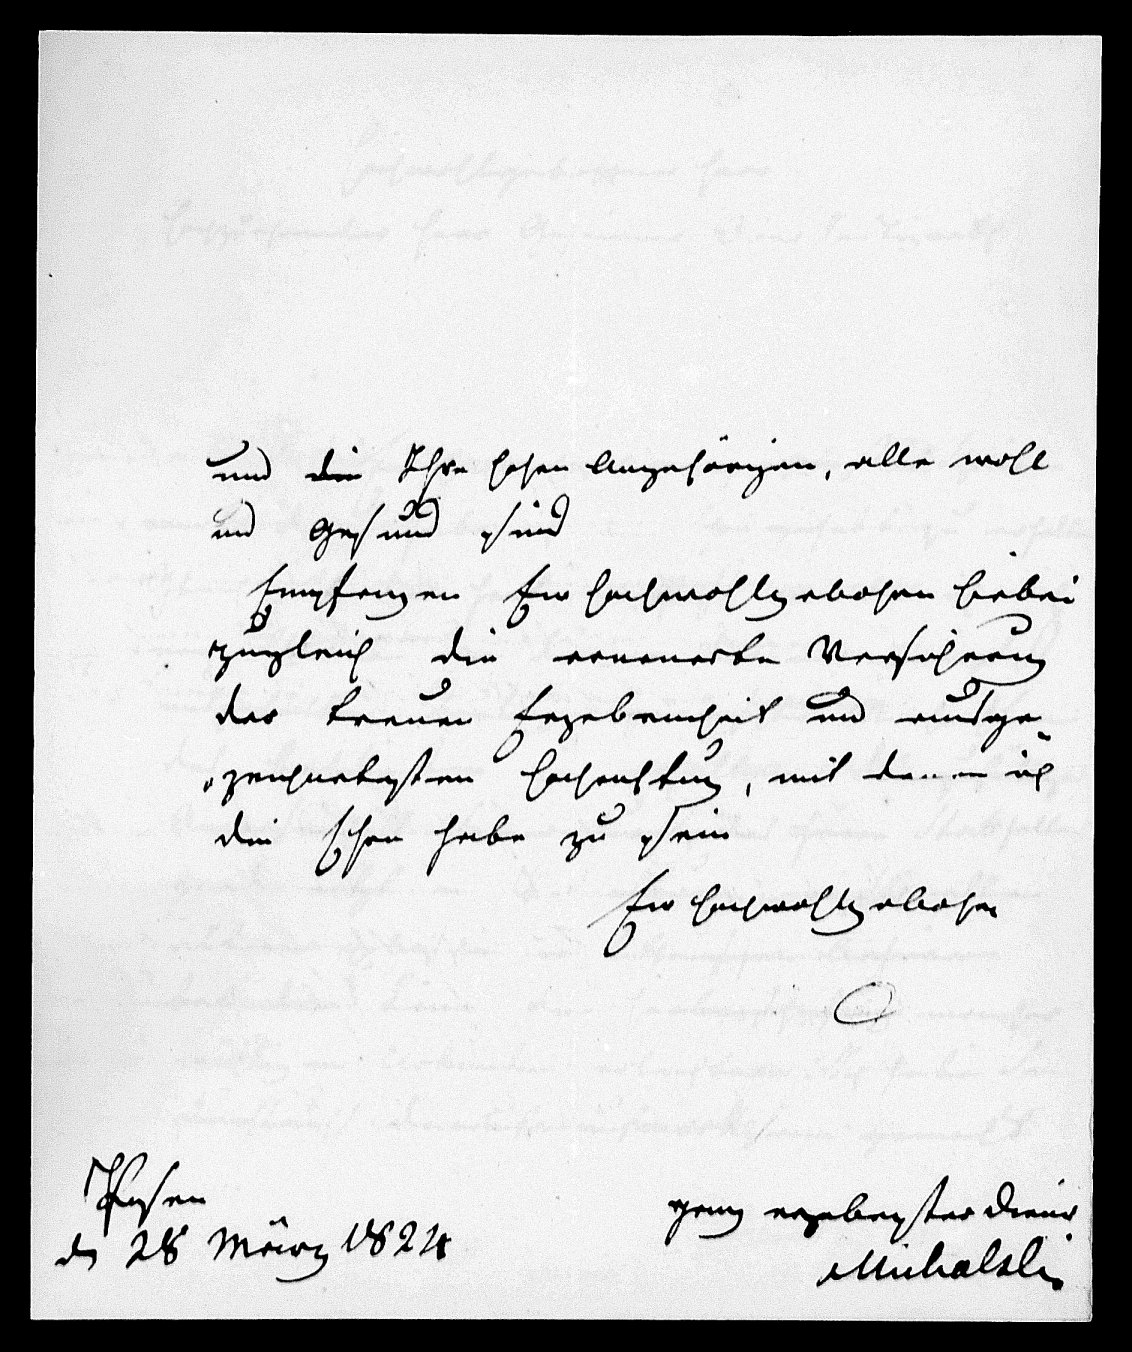 und die Ihre hohen Angehörigen, alle wohl
und Gesund sind
Empfangen Ew Hochwohlgebohren hiebei
zugleich die erneuerte Versichrung
der treuen Ergebenheit und ausge
zeichnetesten Hochachtung, mit denen ich
die Ehre habe zu sein
Ew Hochwohlgebohrn
Posen
dn 28 März 1824
ganz ergebenster Diener
Michalski